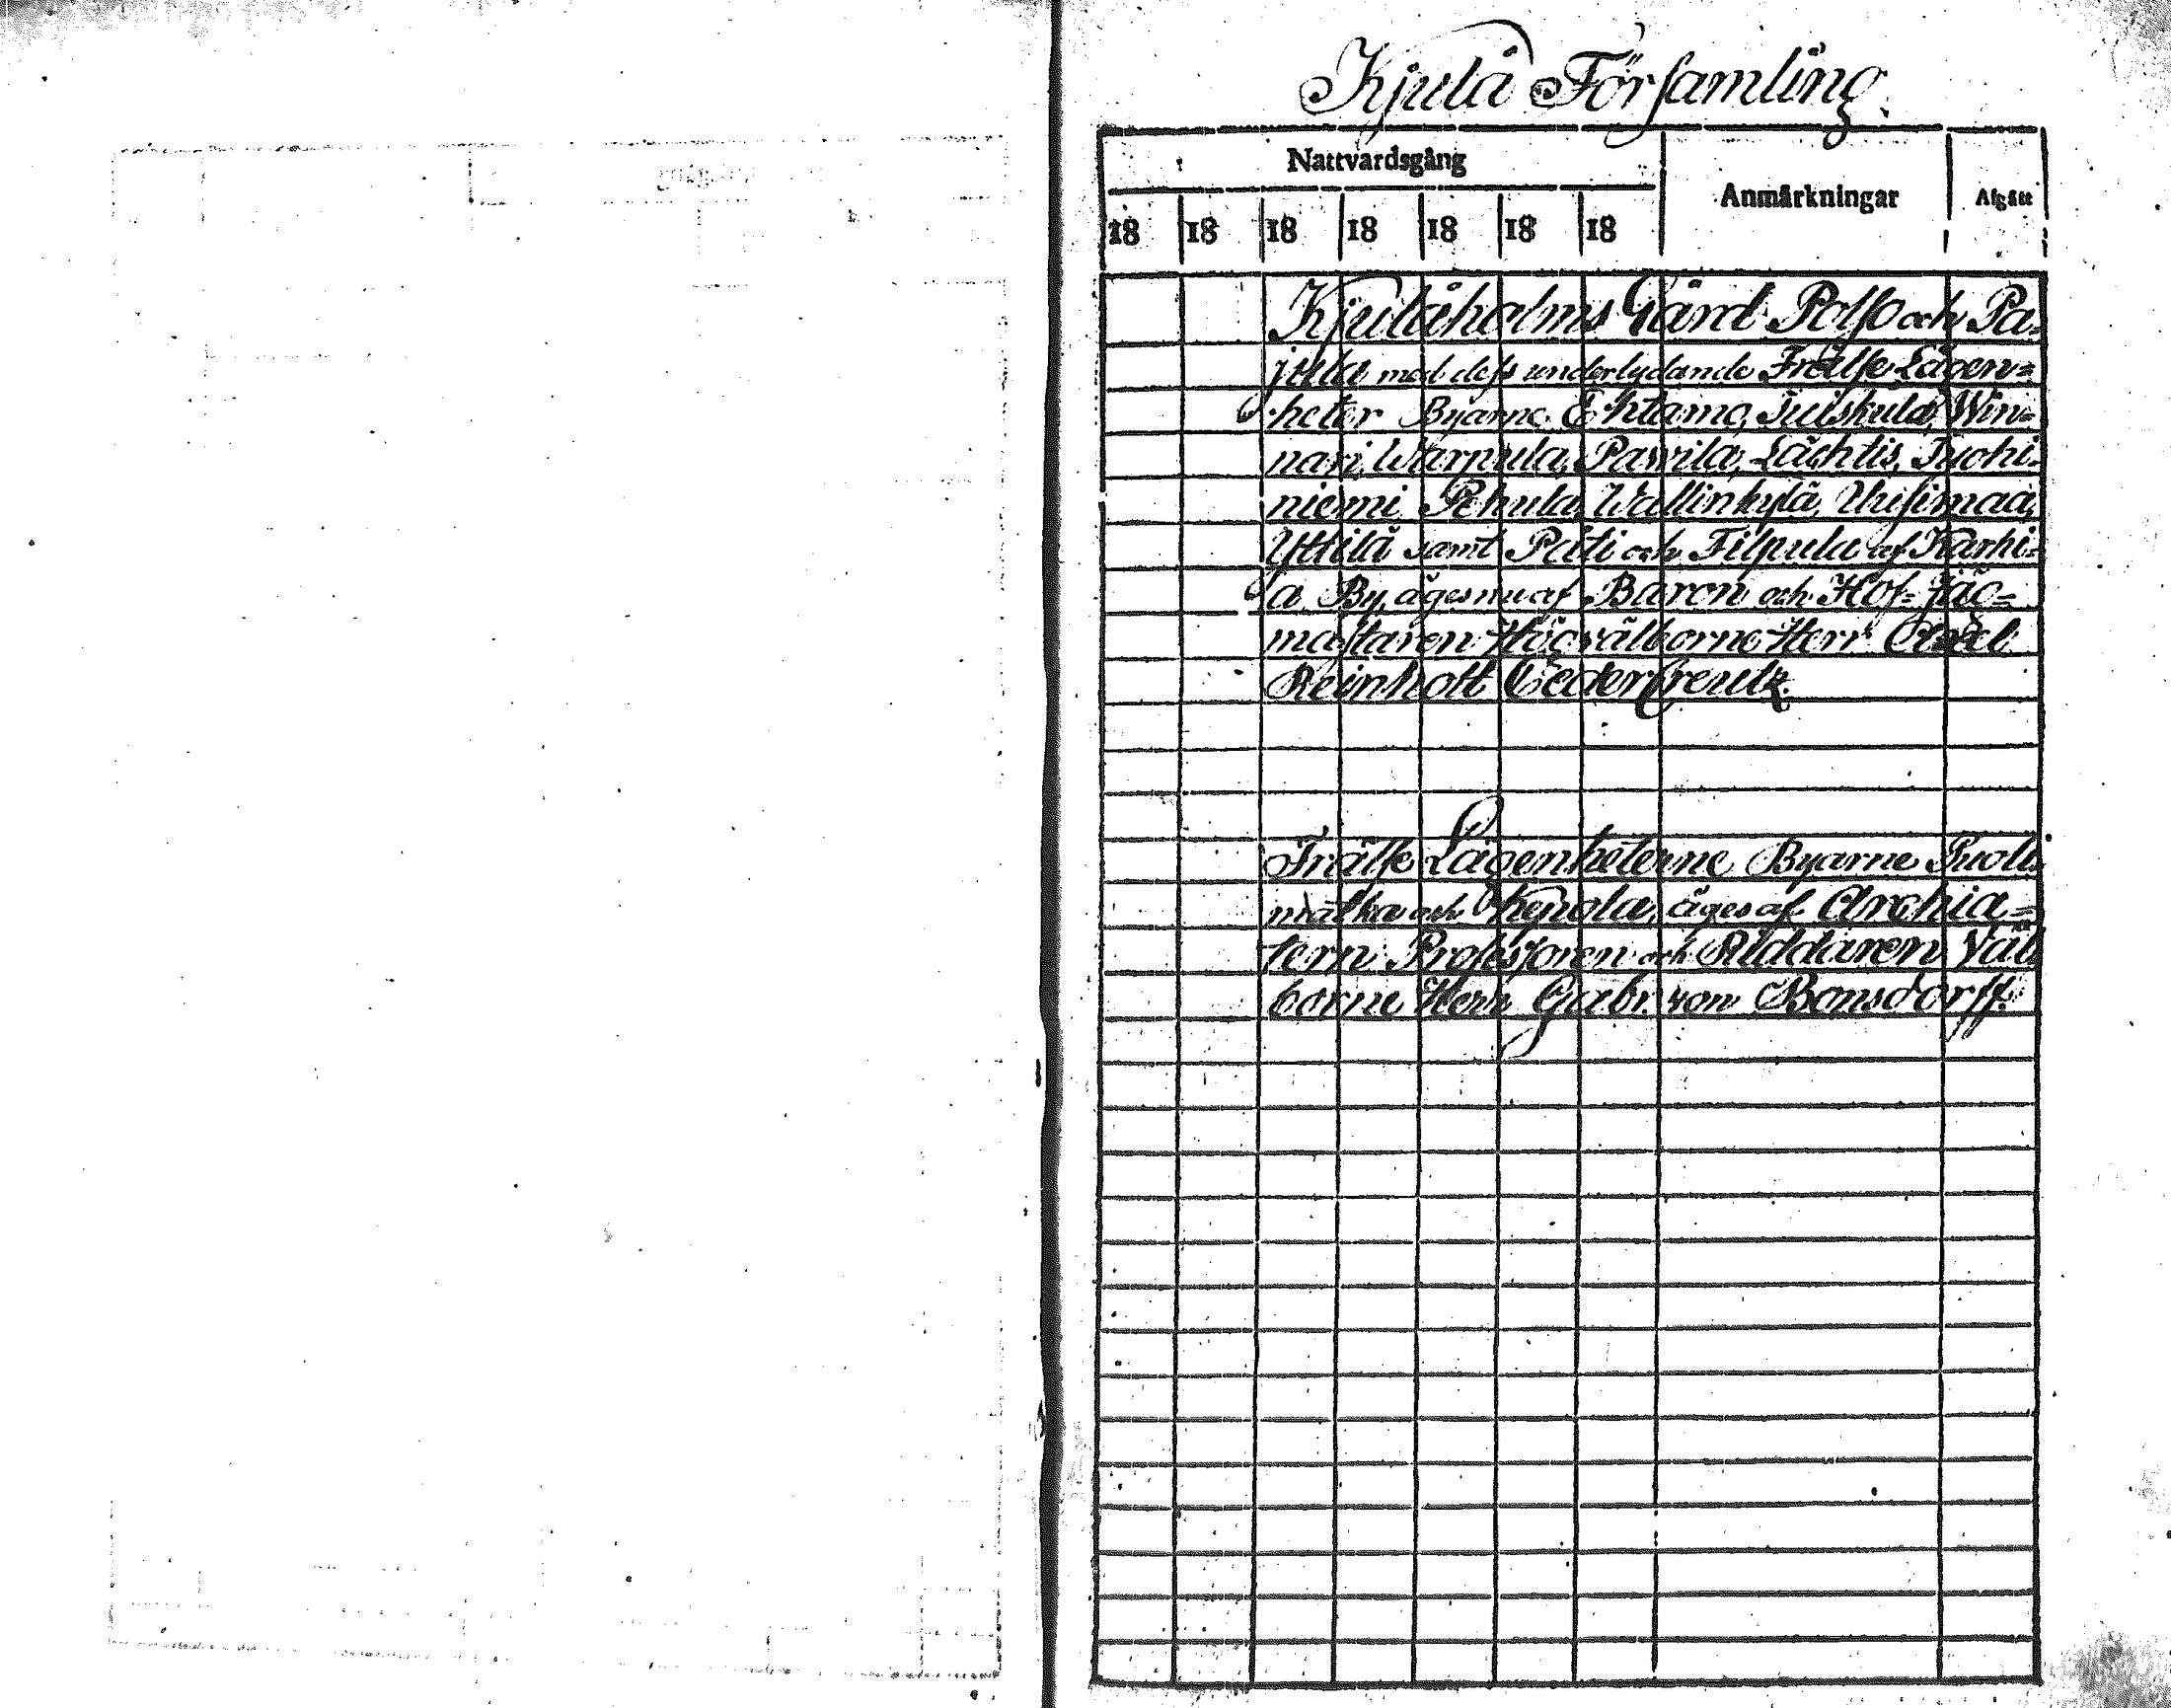 Kjulå Församling
Nattvardsgång
Anmärkningar
Afgått
18 18 18 18 18 18 18
Kjulåholms Gård Polso och Pa-
jula med dess underlydande Frälse Lägen=
heter Byarne Ehtamo, Juiskula, Win=
nari, Warpula, Pavila, Lächtis, Tuohi-
niemi Rehula, Wallinkylä, Uusimaa,
Yttilä samt Päti och Filpula af Karhi=
a By, äges nu af Baron och Hof-Jäg=
mästaren Högvälborne Herr Axel
Reinholt CederCreutz.
Frälse Lägenheterne Byarne Puoli
matka och Kepola, äges af Archia=
tern Professoren och Riddaren Väl
borne Herr Gabr. von Bonsdorff.